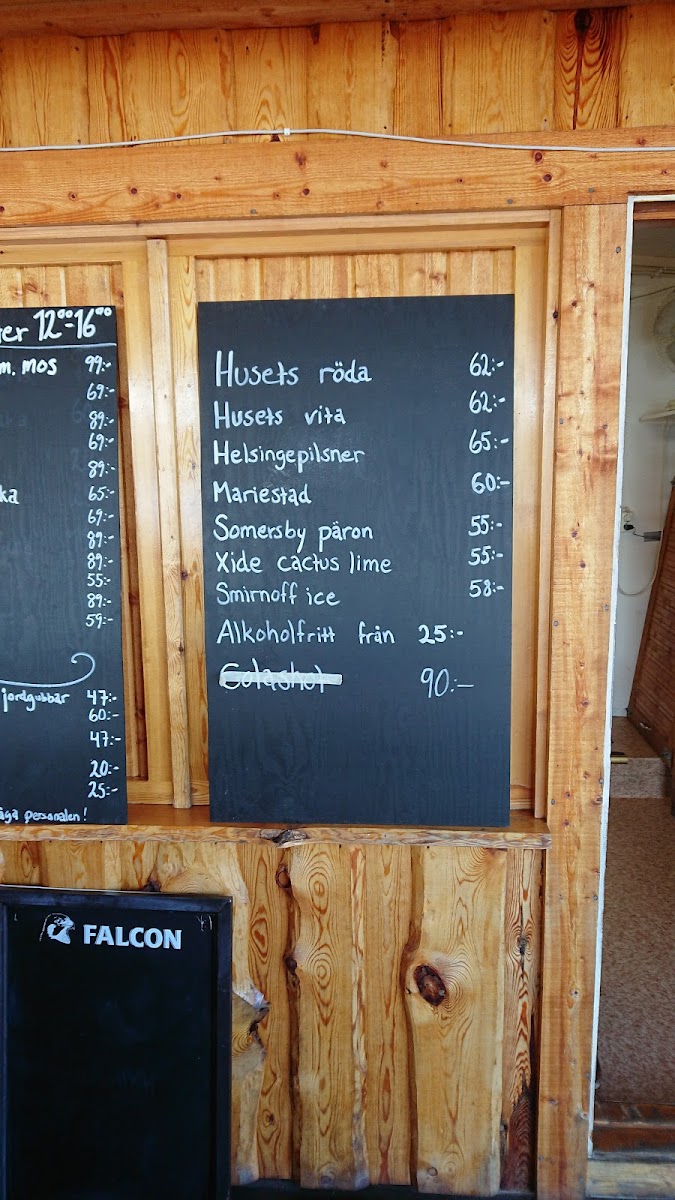 er 12⁰⁰-16⁰⁰
m. mos 99:-
69:-
89:-
69:-
89:-
ka 65:-
69:-
89:-
89:-
55:-
89:-
59:-
jordgubbar 47:-
60:-
47:-
20:-
25:-
åga personalen!
Husets röda 62:-
Husets vita 62:-
Helsingepilsner 65:-
Mariestad 60:-
Somersby päron 55:-
Xide cactus lime 55:-
Smirnoff ice 58:-
Alkoholfritt från 25:-
90:-
FALCON